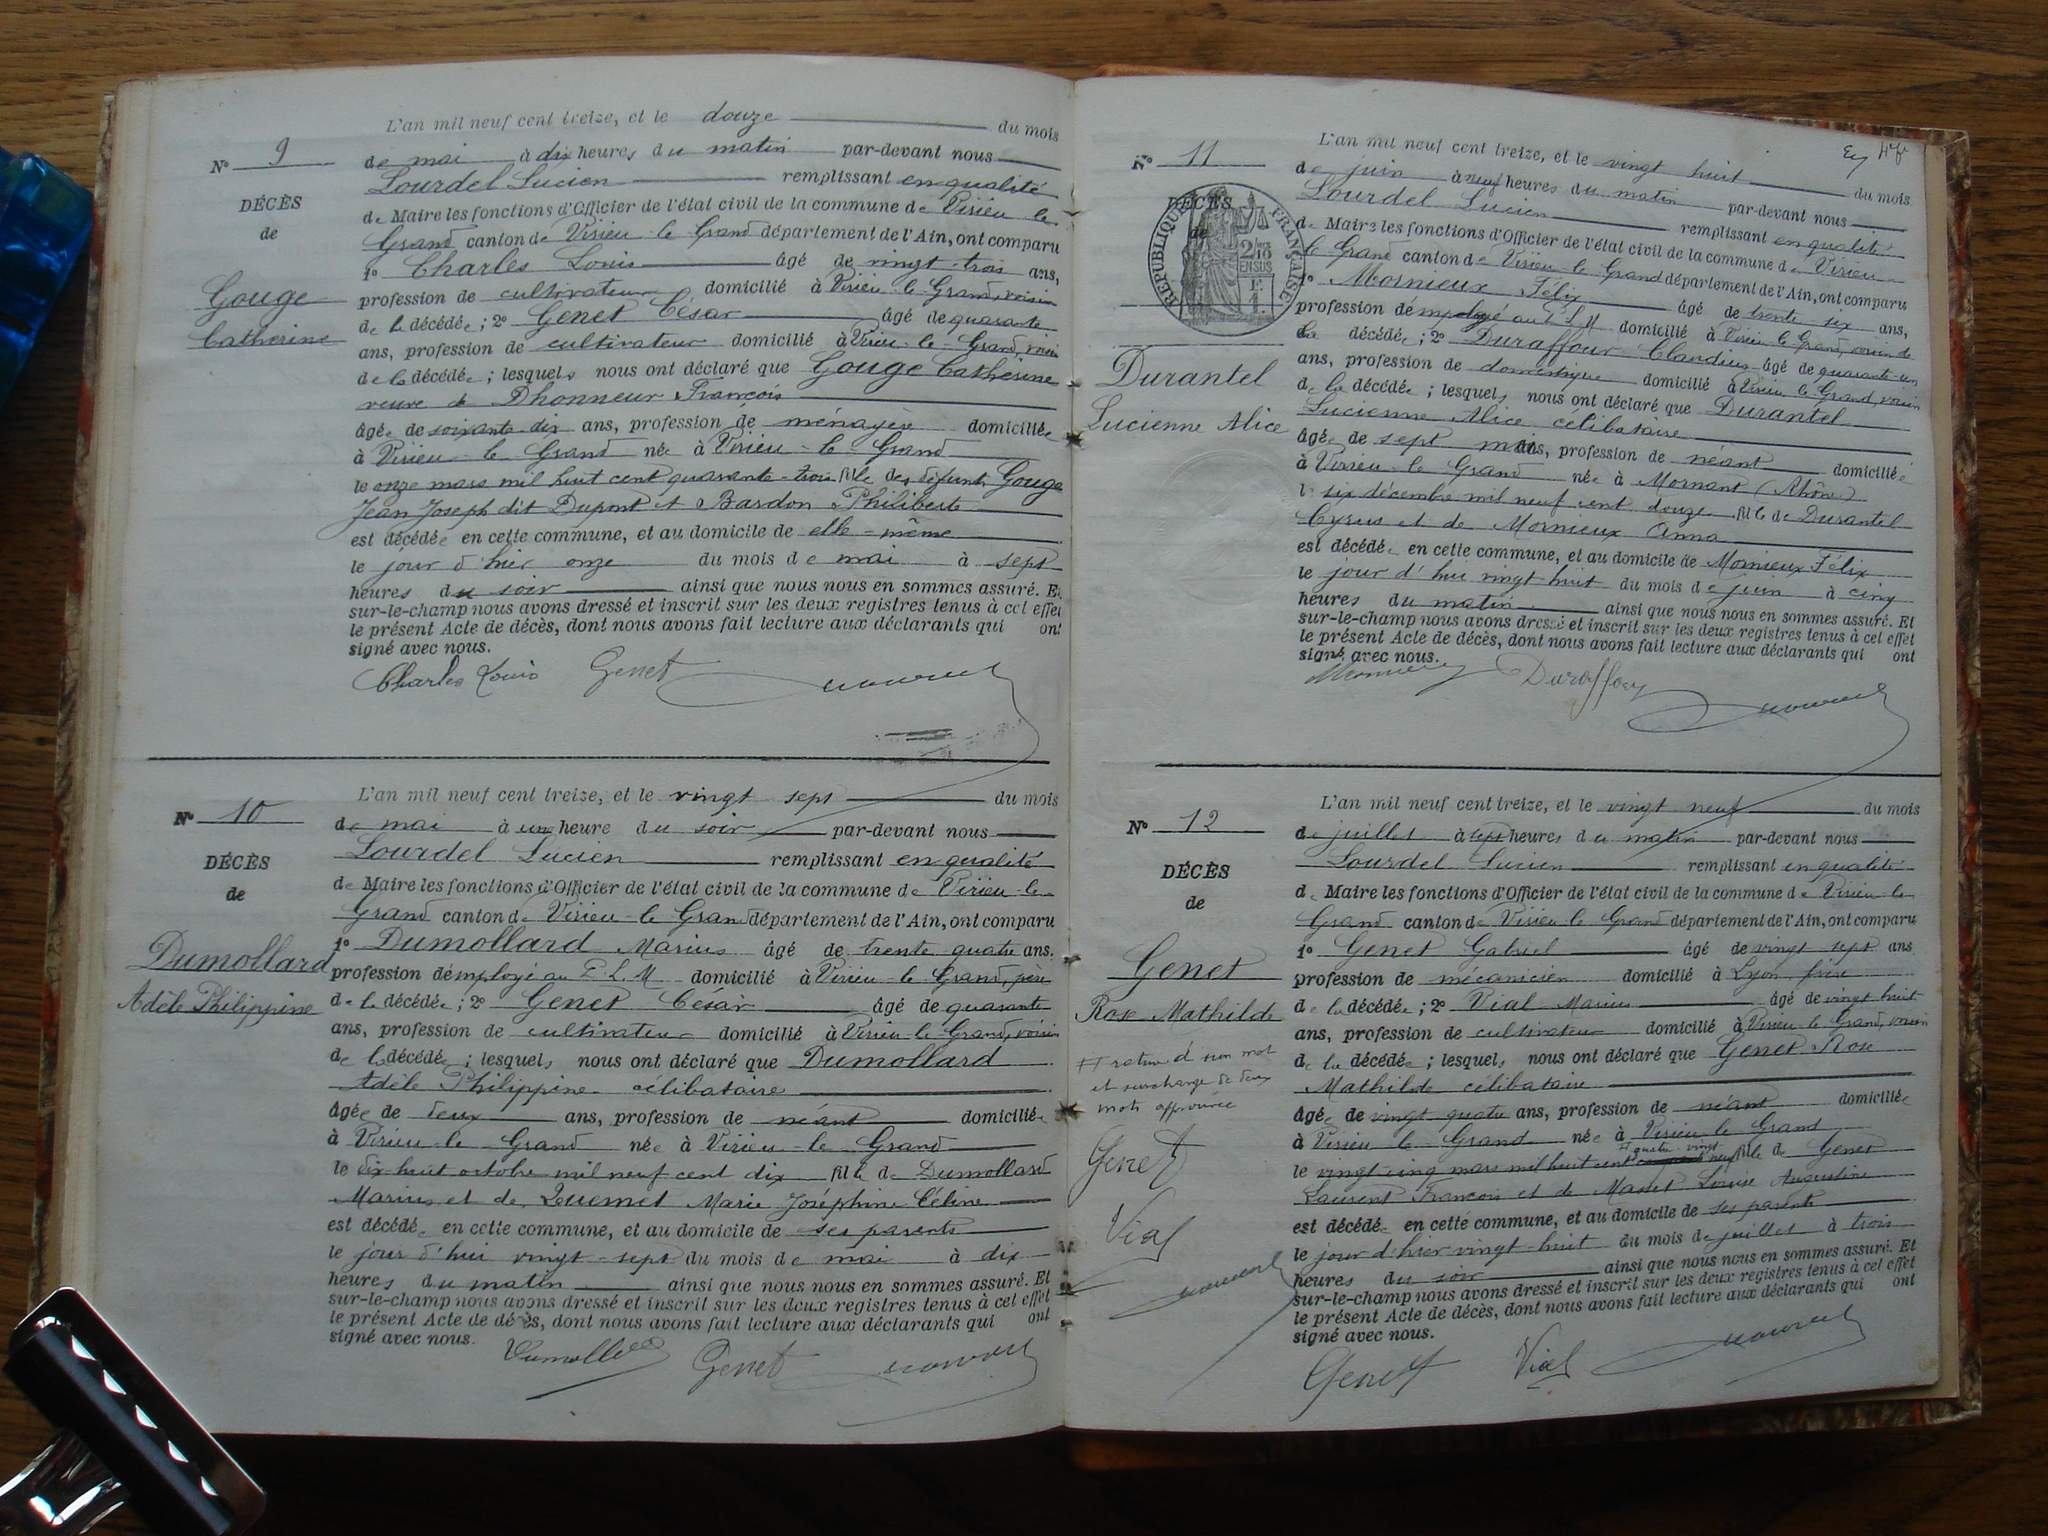 L'an mil neuf cent treize, et le douze du mois
N° 9
de mai à dix heures du matin par-devant nous
Lourdel Lucien remplissant en qualité
DÉCÈS
de Maire les fonctions d'Officier de l'état civil de la commune de Virieu le
de
Grand canton de Virieu-le-Grand département de l'Ain, ont comparu
1° Charles Louis âgé de vingt-trois ans,
Gouge
profession de cultivateur domicilié à Virieu-le-Grand, voisin
Catherine
de la décédée; 2° Genet César âgé de quarante
ans, profession de cultivateur domicilié à Virieu-le-Grand, voisin
de la décédée; lesquels nous ont déclaré que Gouge Catherine
veuve de Dhonneur François
âgée de soixante dix ans, profession de ménagère domiciliée
à Virieu-le-Grand née à Virieu-le-Grand
le onze mars mil huit cent quarante-trois fille des défunts Gouge
Jean Joseph dit Dupont et Bardon Philiberte
est décédée en cette commune, et au domicile de elle-même
le jour d'hier onze du mois de mai à sept
heures du soir ainsi que nous nous en sommes assuré. Et
sur-le-champ nous avons dressé et inscrit sur les deux registres tenus à cet effet
le présent Acte de décès, dont nous avons fait lecture aux déclarants qui ont
signé avec nous.
Charles Louis Genet
L'an mil neuf cent treize, et le vingt sept du mois
N° 10
de mai à une heure du soir par-devant nous
Lourdel Lucien remplissant en qualité
DÉCÈS
de Maire les fonctions d'Officier de l'état civil de la commune de Virieu-le-
de
Grand canton de Virieu-le-Grand département de l'Ain, ont comparu
Dumollard
1° Dumollard Marius âgé de trente quatre ans,
Adèle Philippine
profession d'employé au P.L.M domicilié à Virieu-le-Grand, père
de la décédée; 2° Genet César âgé de quarante
ans, profession de cultivateur domicilié à Virieu-le-Grand, voisin
de la décédée; lesquels nous ont déclaré que Dumollard
Adèle Philippine célibataire
âgée de deux ans, profession de néant domiciliée
à Virieu-le-Grand née à Virieu-le-Grand
le dix-huit octobre mil neuf cent dix fille de Dumollard
Marius et de Quemet Marie Joséphine Céline
est décédée en cette commune, et au domicile de ses parents
le jour d'hui vingt-sept du mois de mai à dix
heures du matin ainsi que nous nous en sommes assuré. Et
sur-le-champ nous avons dressé et inscrit sur les deux registres tenus à cet effet
le présent Acte de décès, dont nous avons fait lecture aux déclarants qui ont
signé avec nous.
Genet
L'an mil neuf cent treize, et le vingt huit du mois
N° 11
de juin à neuf heures du matin par-devant nous
Lourdel Lucien remplissant en qualité
DÉCÈS
de
RÉPUBLIQUE FRANÇAISE
2/10
EN SUS
1F
de Maire les fonctions d'Officier de l'état civil de la commune de Virieu
le Grand canton de Virieu-le-Grand département de l'Ain, ont comparu
1° Mornieux Félix âgé de trente-six ans,
profession d'employé au P.L.M domicilié à Virieu le Grand, voisin de
Durantel
la décédée; 2° Duraffour Claudius âgé de quarante-un
Lucienne Alice
ans, profession de domestique domicilié à Virieu le Grand, voisin
de la décédée; lesquels nous ont déclaré que Durantel
Lucienne Alice célibataire
âgée de sept mois, profession de néant domiciliée
à Virieu-le-Grand née à Mornant (Rhône)
le six décembre mil neuf cent douze fille de Durantel
Cyrus et de Mornieux Anna
est décédée en cette commune, et au domicile de Mornieux Félix
le jour d'hui vingt-huit du mois de juin à cinq
heures du matin ainsi que nous nous en sommes assuré. Et
sur-le-champ nous avons dressé et inscrit sur les deux registres tenus à cet effet
le présent Acte de décès, dont nous avons fait lecture aux déclarants qui ont
signé avec nous.
L'an mil neuf cent treize, et le vingt neuf du mois
N° 12
de juillet à sept heures du matin par-devant nous
Lourdel Lucien remplissant en qualité
DÉCÈS
de Maire les fonctions d'Officier de l'état civil de la commune de Virieu-le
de
Grand canton de Virieu-le-Grand département de l'Ain, ont comparu
Genet
1° Genet Gabriel âgé de vingt sept ans
profession de mécanicien domicilié à Lyon frère
Rose Mathilde
de la décédée; 2° Vial Marius âgé de vingt huit
ans, profession de cultivateur domicilié à Virieu-le-Grand, voisin
de la décédée; lesquels nous ont déclaré que Genet Rose
Mathilde célibataire
rature d'un mot
et surcharge de deux
mots approuvée
âgée de vingt quatre ans, profession de néant domiciliée
à Virieu le Grand née à Virieu le Grand
quatre-vingt
le vingt-cinq mars mil huit cent neuf fille de Genet
Laurent François et de Massot Louise Augustine
est décédée en cette commune, et au domicile de ses parents
le jour d'hier vingt-huit du mois de juillet à trois
heures du soir ainsi que nous nous en sommes assuré. Et
sur-le-champ nous avons dressé et inscrit sur les deux registres tenus à cet effet
le présent Acte de décès, dont nous avons fait lecture aux déclarants qui ont
signé avec nous.
Genet
Vial
Genet Vial